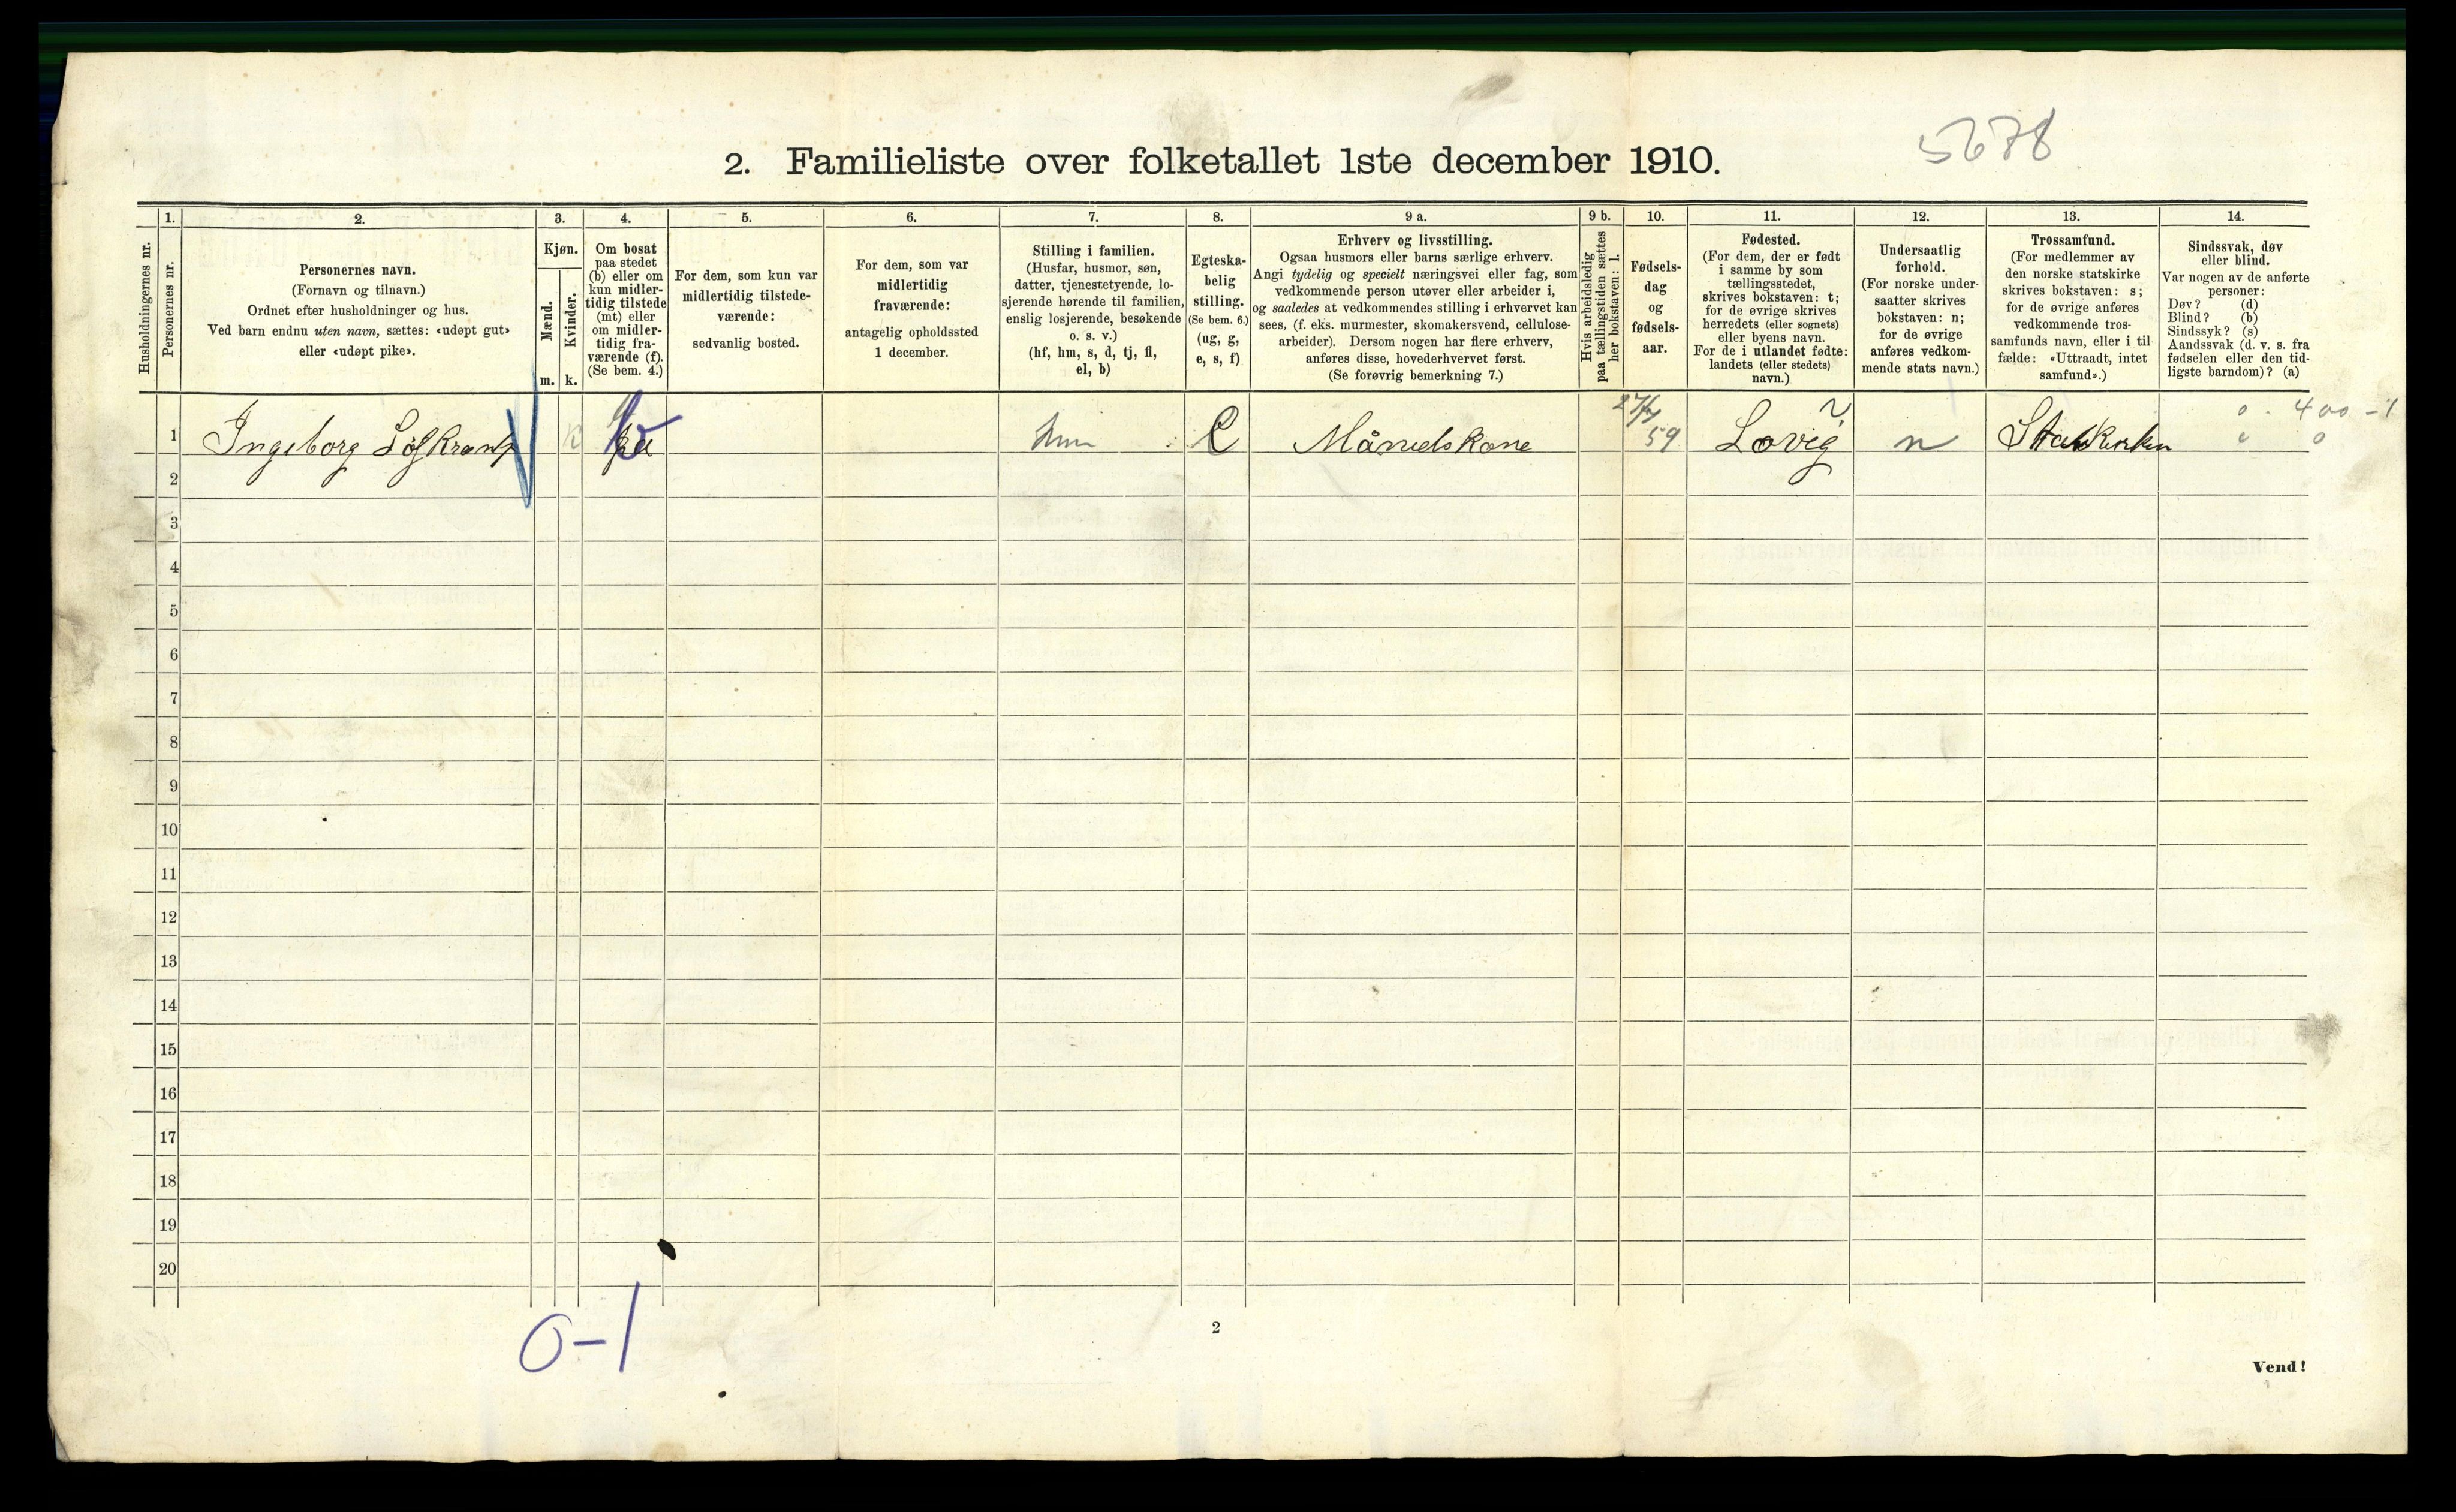 5678
2. Familieliste over folketallet 1ste december 1910.
Husholdningernes nr.
1.
Personernes nr.
2.
Personernes navn.
(Fornavn og tilnavn.)
Ordnet efter husholdninger og hus.
Ved barn endnu uten navn, sættes: «udøpt gut»
eller «udøpt pike».
3.
Kjøn.
Mænd.
m.
Kvinder.
k.
4.
Om bosat
paa stedet
(b) eller om
kun midler-
tidig tilstede
(mt) eller
om midler-
tidig fra-
værende (f).
(Se bem. 4.)
5.
For dem, som kun var
midlertidig tilstede-
værende:
sedvanlig bosted.
6.
For dem, som var
midlertidig
fraværende:
antagelig opholdssted
1 december.
7.
Stilling i familien.
(Husfar, husmor, søn,
datter, tjenestetyende, lo-
sjerende hørende til familien,
enslig losjerende, besøkende
o. s. v.)
(hf, hm, s, d, tj, fl,
el, b)
8.
Egteska-
belig
stilling.
(Se bem. 6.)
(ug, g,
e, s, f)
9 a.
Erhverv og livsstilling.
Ogsaa husmors eller barns særlige erhverv.
Angi tydelig og specielt næringsvei eller fag, som
vedkommende person utøver eller arbeider i,
og saaledes at vedkommendes stilling i erhvervet kan
sees, (f. eks. murmester, skomakersvend, cellulose-
arbeider). Dersom nogen har flere erhverv,
anføres disse, hovederhvervet først.
(Se forøvrig bemerkning 7.)
9 b.
Hvis arbeidsledig
paa tællingstiden sættes
her bokstaven: l.
10.
Fødsels-
dag
og
fødsels-
aar.
11.
Fødested.
(For dem, der er født
i samme by som
tællingsstedet,
skrives bokstaven: t;
for de øvrige skrives
herredets (eller sognets)
eller byens navn.
For de i utlandet fødte:
landets (eller stedets)
navn.)
12.
Undersaatlig
forhold.
(For norske under-
saatter skrives
bokstaven: n;
for de øvrige
anføres vedkom-
mende stats navn.)
13.
Trossamfund.
(For medlemmer av
den norske statskirke
skrives bokstaven: s;
for de øvrige anføres
vedkommende tros-
samfunds navn, eller i til-
fælde: «Uttraadt, intet
samfund».)
14.
Sindssvak, døv
eller blind.
Var nogen av de anførte
personer:
Døv? (d)
Blind? (b)
Sindssyk? (s)
Aandssvak (d. v. s. fra
fødselen eller den tid-
ligste barndom)? (a)
0 . 400 - 1
1 Ingeborg k b e 59 n
2
3
4
5
6
7
8
9
10
11
12
13
14
15
16
17
18
19
20
0-1
2
Vend!